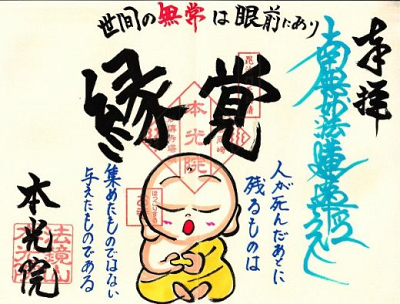 世間の無常は眼前にあり
奉拝
南無妙法蓮華経
縁覚
本光院
人が死んだあとに
残るものは
集めたものではない
与えたものである
本光院
法鏡山